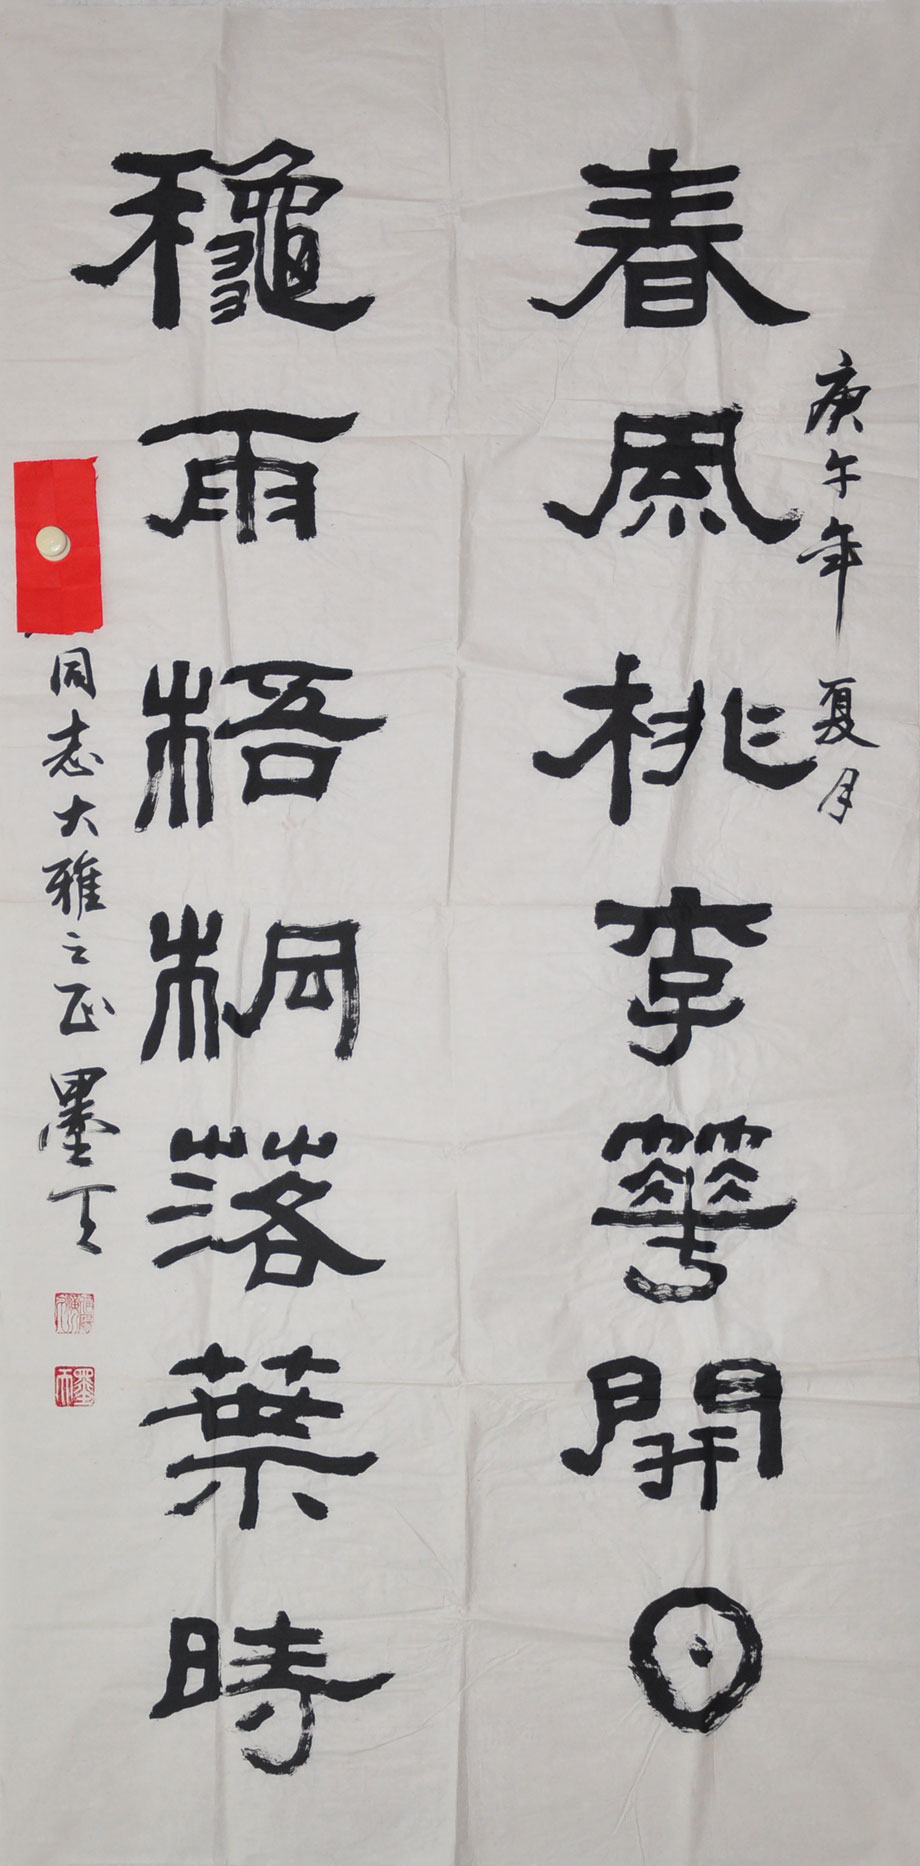 庚午年 夏月
春風桃李華開日
龝雨梧桐落葉時
同志大雅之正 墨